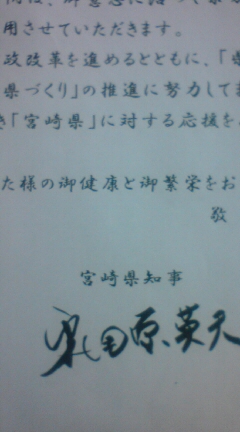 用させていただきます。
政改革を進めるとともに、「
県づくり」の推進に努力して
「宮崎県」に対する応援を
た様の御健康と御繁栄をお
敬
宮崎県知事
東国原英夫